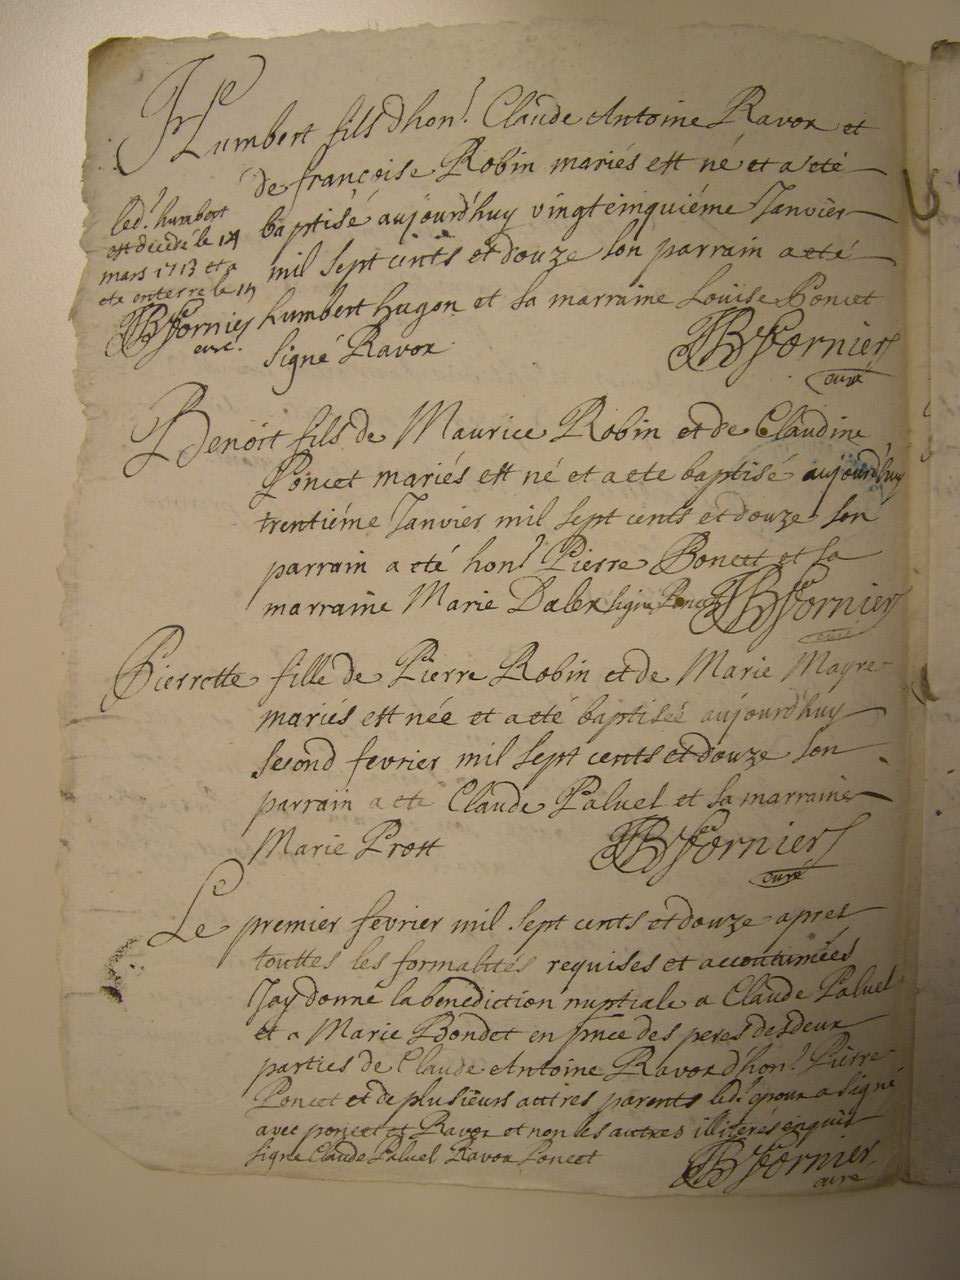 Humbert fils d'hon.^ Claude Antoine Ravox et
de françoise Robin mariés est né et a eté
baptisé aujourd'huy vingtcinquiéme Janvier
mil sept cents et douze son parrain a eté
humbert hugon et sa marraine Loüise Poncet
signé Ravox JB Fornier
curé
led.^ humbert
est décédé le 14
mars 1713 et a
ete enterre le 15
JB Fornier
curé
Benoit fils de Maurice Robin et de Claudine
Poncet mariés est né et a ete baptisé aujourd'huy
trentiéme Janvier mil sept cents et douze son
parrain a eté hon.^ Pierre Poncet et sa
marraine Marie Dalex signé Poncet JB Fornier
curé
Pierrette fille de Pierre Robin et de Marie Mayre
mariés est née et a eté baptisée aujourd'huy
second fevrier mil sept cents et douze son
parrain a eté Claude Paluel et sa marraine
Marie Prost JB Fornier
curé
Le premier fevrier mil sept cents et douze apres
touttes les formalités requises et accoutumées
Jay donné la benediction nuptiale a Claude Paluel
et a Marie Bondet en pnce des peres des deux
parties de Claude Antoine Ravox d'hon.^ Pierre
Poncet et de plusieurs autres parents led.^ epoux a signé
avec poncet et Ravox et non les autres illiterés enquis
signé Claude Paluel Ravox Poncet JB Fornier
curé